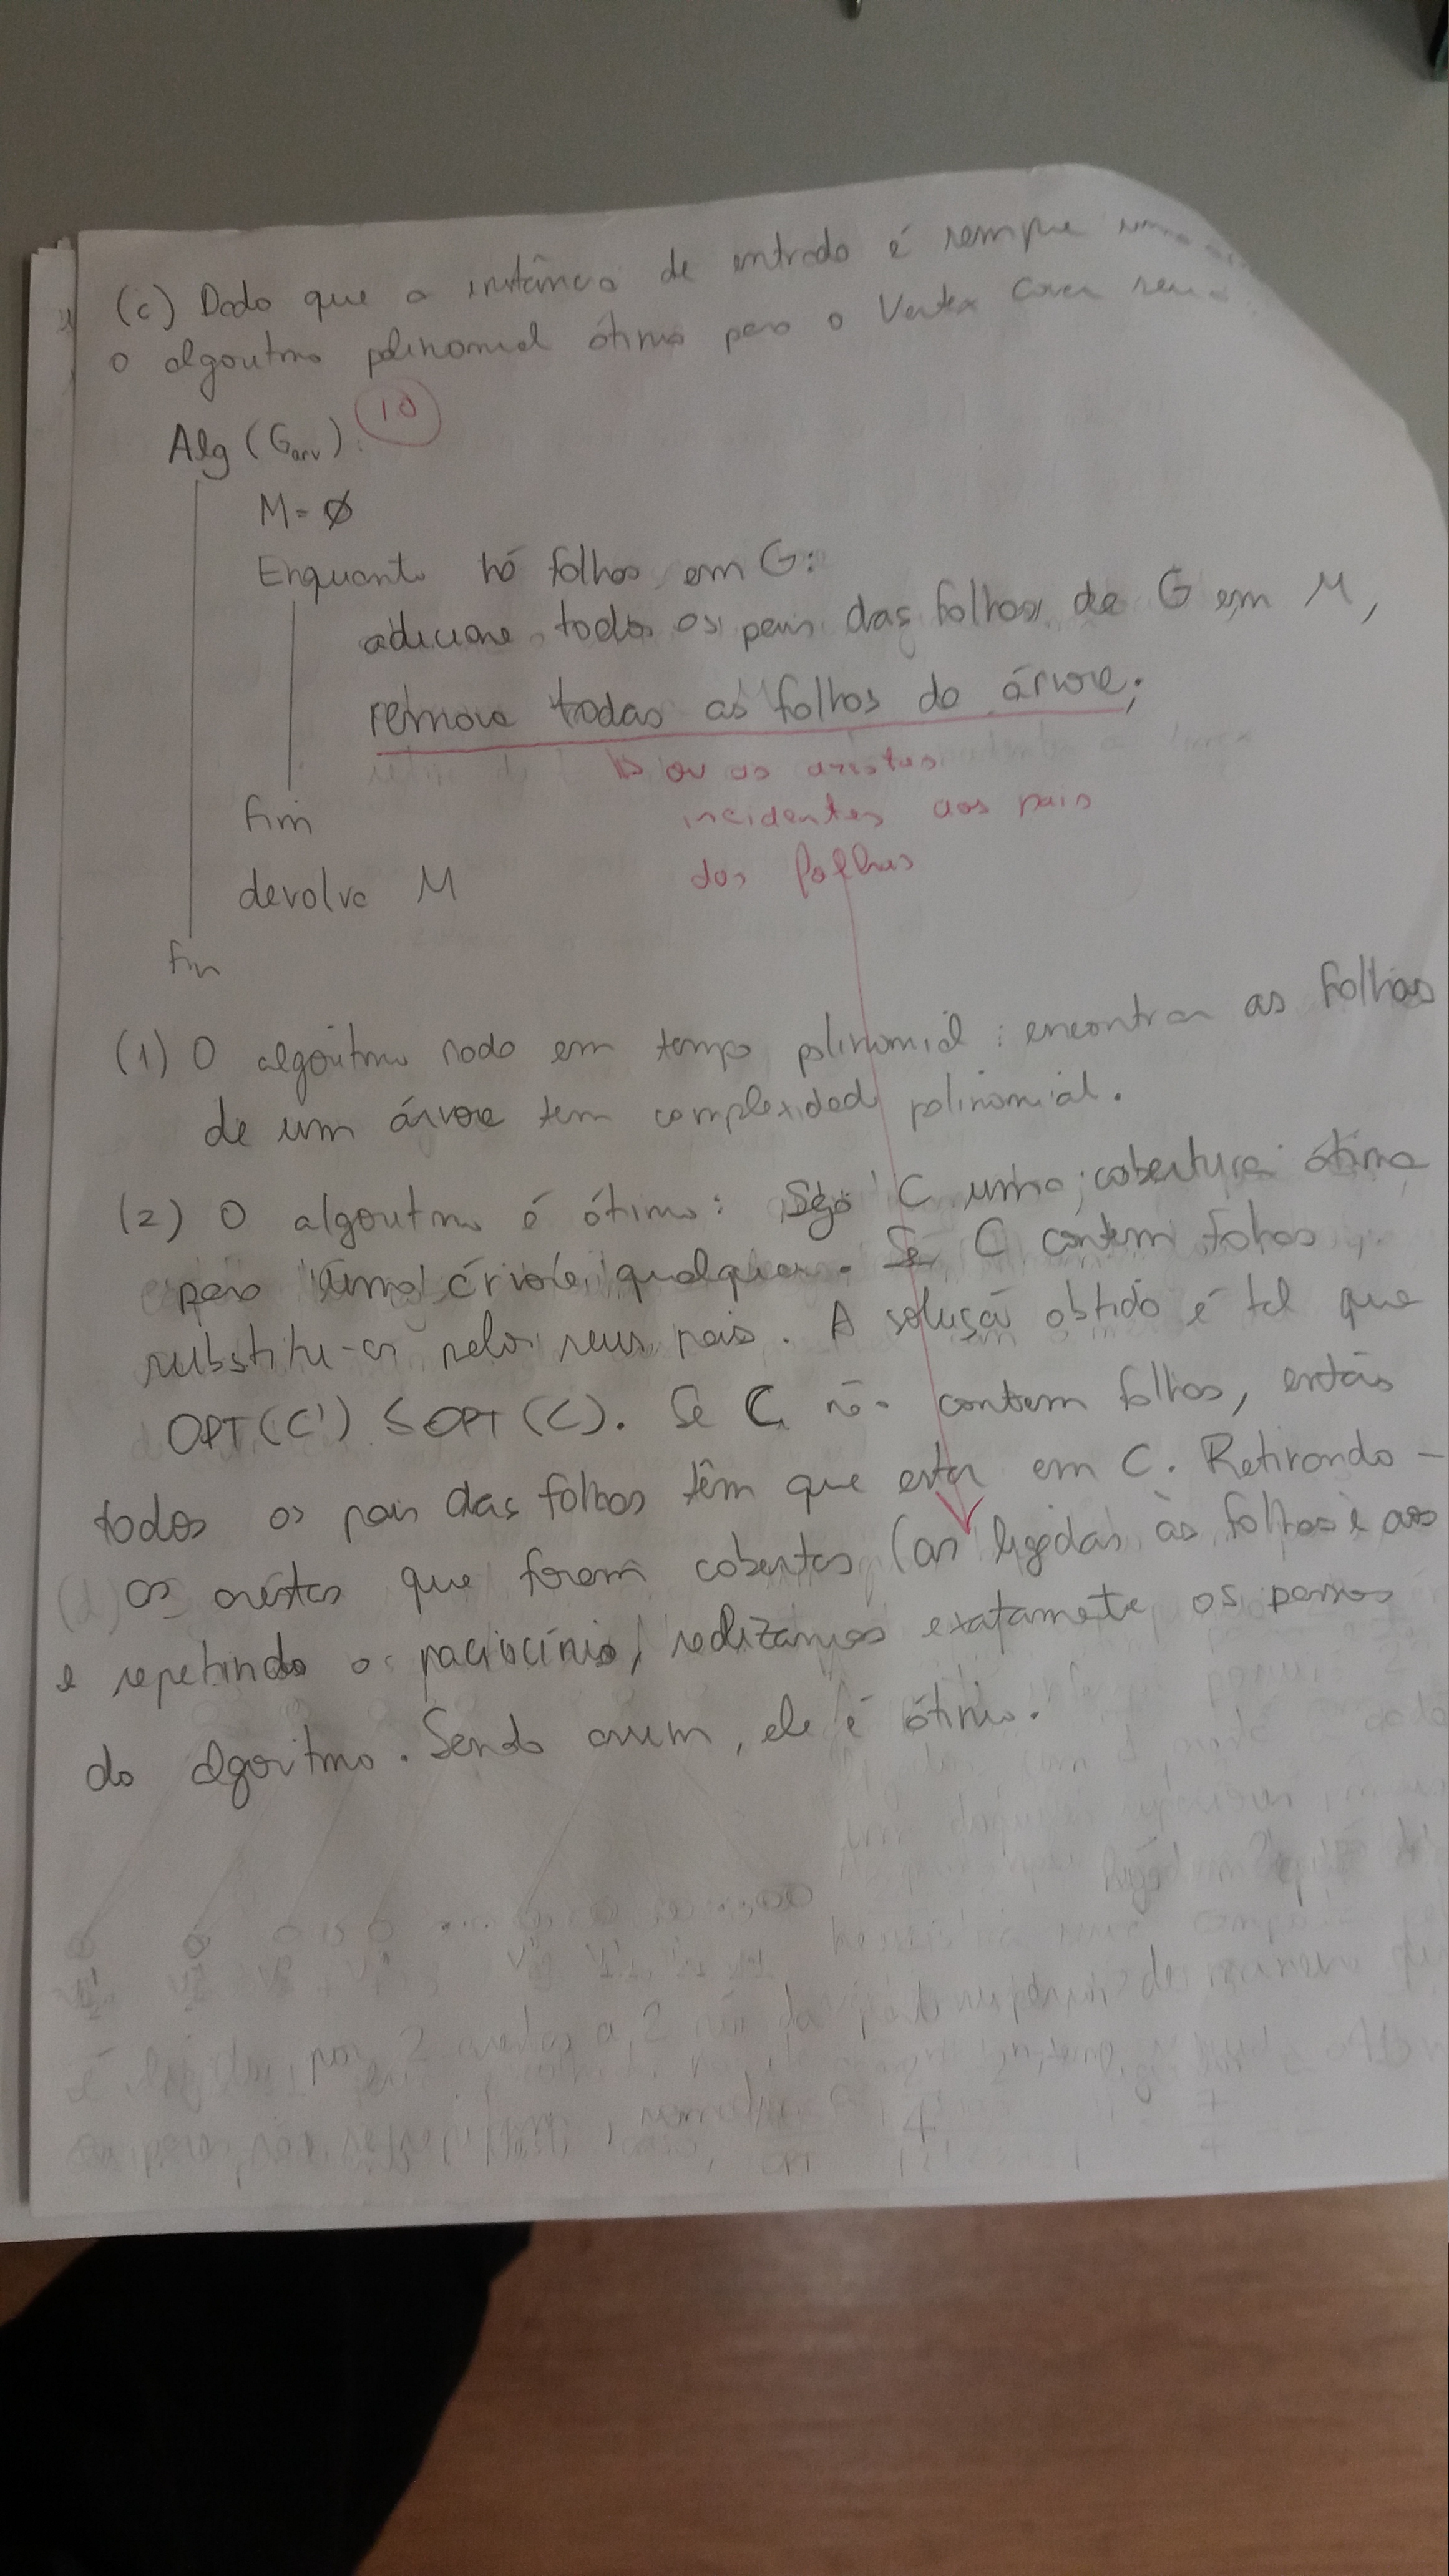 (c) Dado que a instância de entrada é sempre uma
o algoritmo polinomial ótimo para o Vertex Cover
10
Alg (Garv):
M = ∅
Enquanto há folhas em G:
adicione todos os pais das folhas de G em M,
remova todas as folhas da árvore;
↳ ou as arestas
incidentes aos pais
das folhas
fim
devolva M
fim
(1) O algoritmo roda em tempo polinomial: encontrar as folhas
de um árvore tem complexidade polinomial.
(2) O algoritmo é ótimo: Seja C uma cobertura ótima
para uma árvore qualquer. Se C contem folhas,
substitu-as pelos seus pais. A solução obtida é tal que
OPT(C') ≤ OPT(C). Se C não contem folhas, então
todos os pais das folhas têm que estar em C. Retirando-
as arestas que foram cobertas (as ligadas às folhas e aos
e repetindo o raciocínio, realizamos exatamente os passos
do algoritmo. Sendo assim, ele é ótimo.